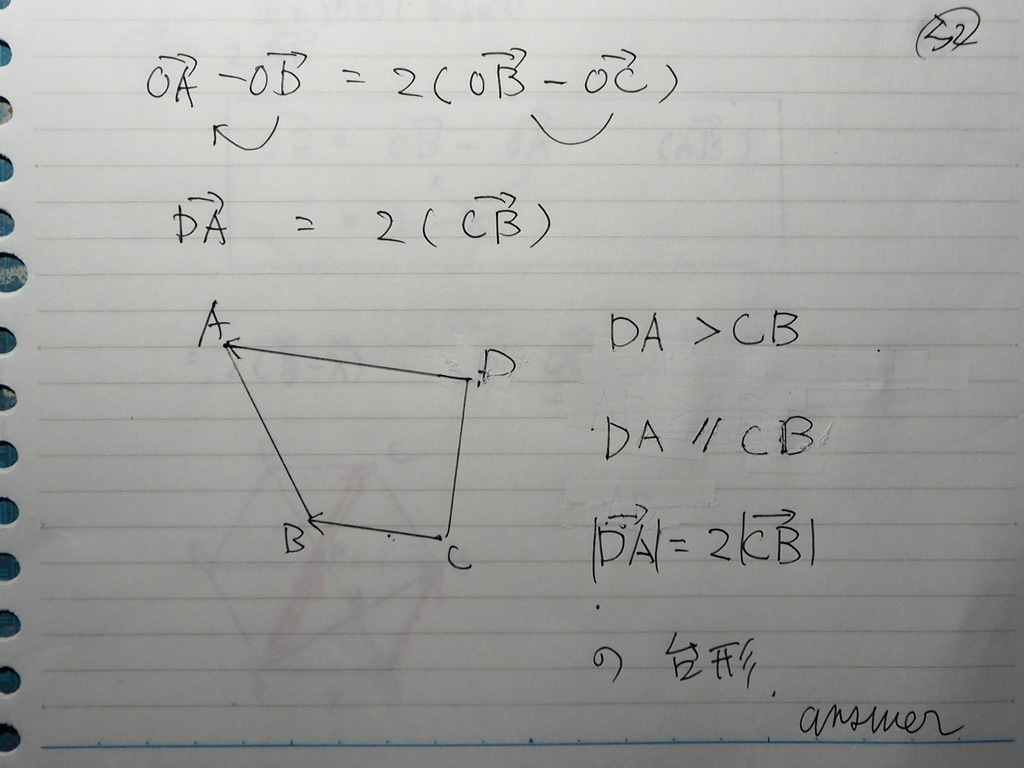 52
OA→ - OD→ = 2(OB→ - OC→)
DA→ = 2(CB→)
A
D
B
C
DA > CB
DA // CB
|DA→| = 2|CB→|
の 台形
answer